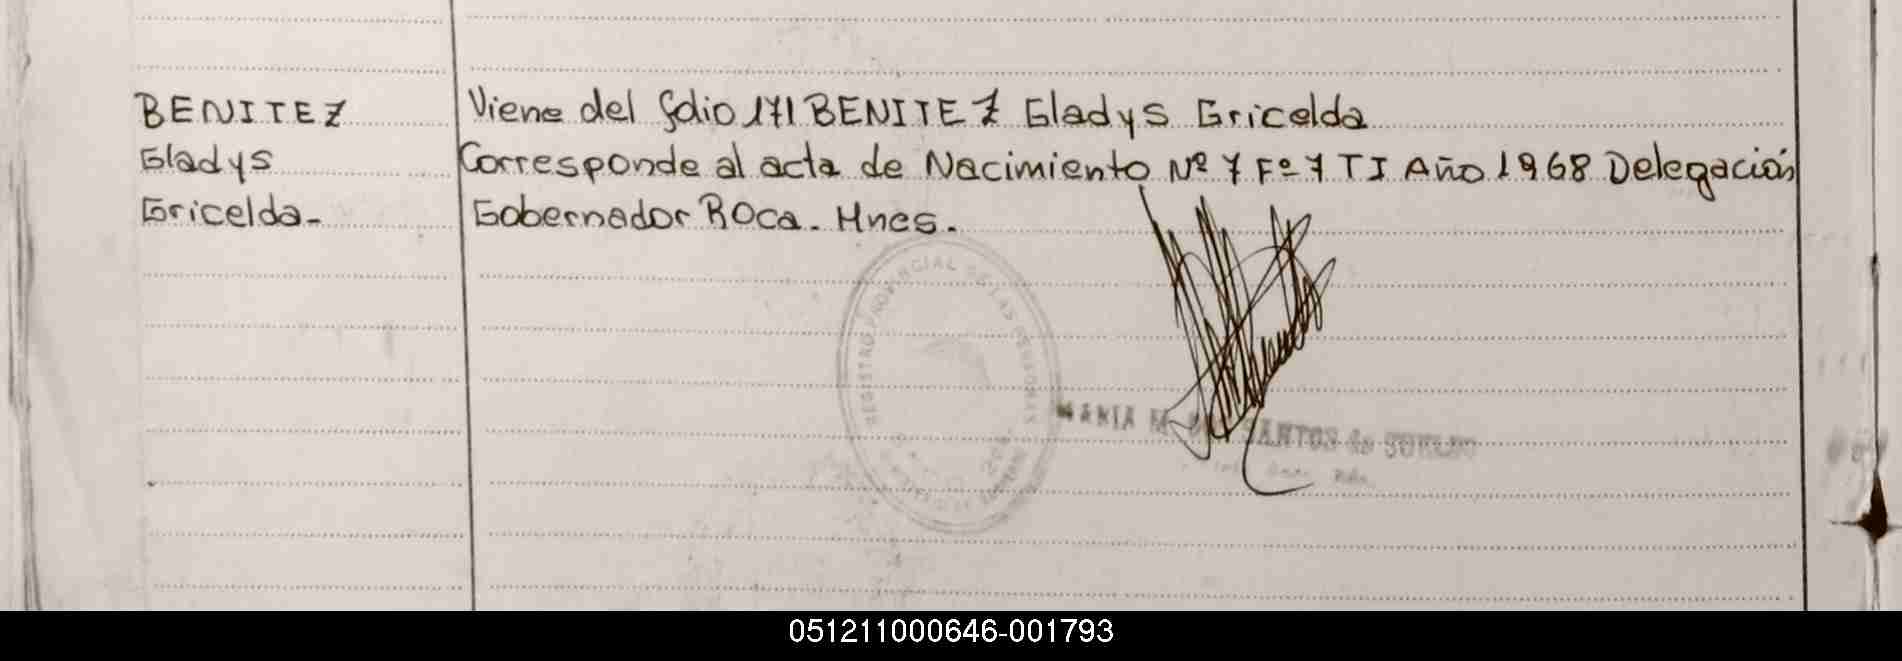 BENITEZ
Gladys
Gricelda-
Viene del folio 171 BENITEZ Gladys Gricelda
Corresponde al acta de Nacimiento Nº 7 Fº 7 T I Año 1968 Delegación
Gobernador ROCa. Mnes.
REGISTRO PROVINCIAL DE LAS PERSONAS
MARIA SANTOS de
051211000646-001793